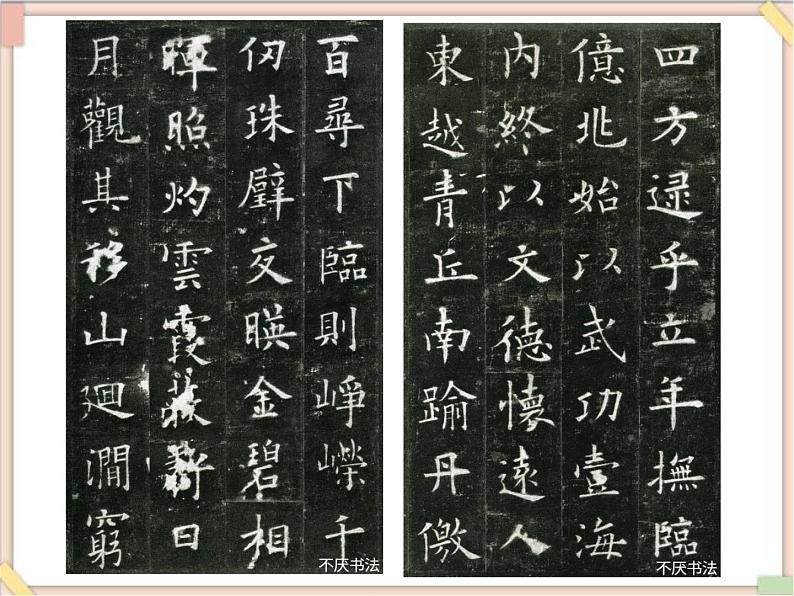 百尋下臨則崢嶸千
仞珠璧交暎金碧相
暉照灼雲霞蔽虧日
月觀其移山廻澗窮
不厌书法
四方逮乎立年撫臨
億兆始以武功壹海
内終以文德懷遠人
東越青丘南踰丹儌
不厌书法